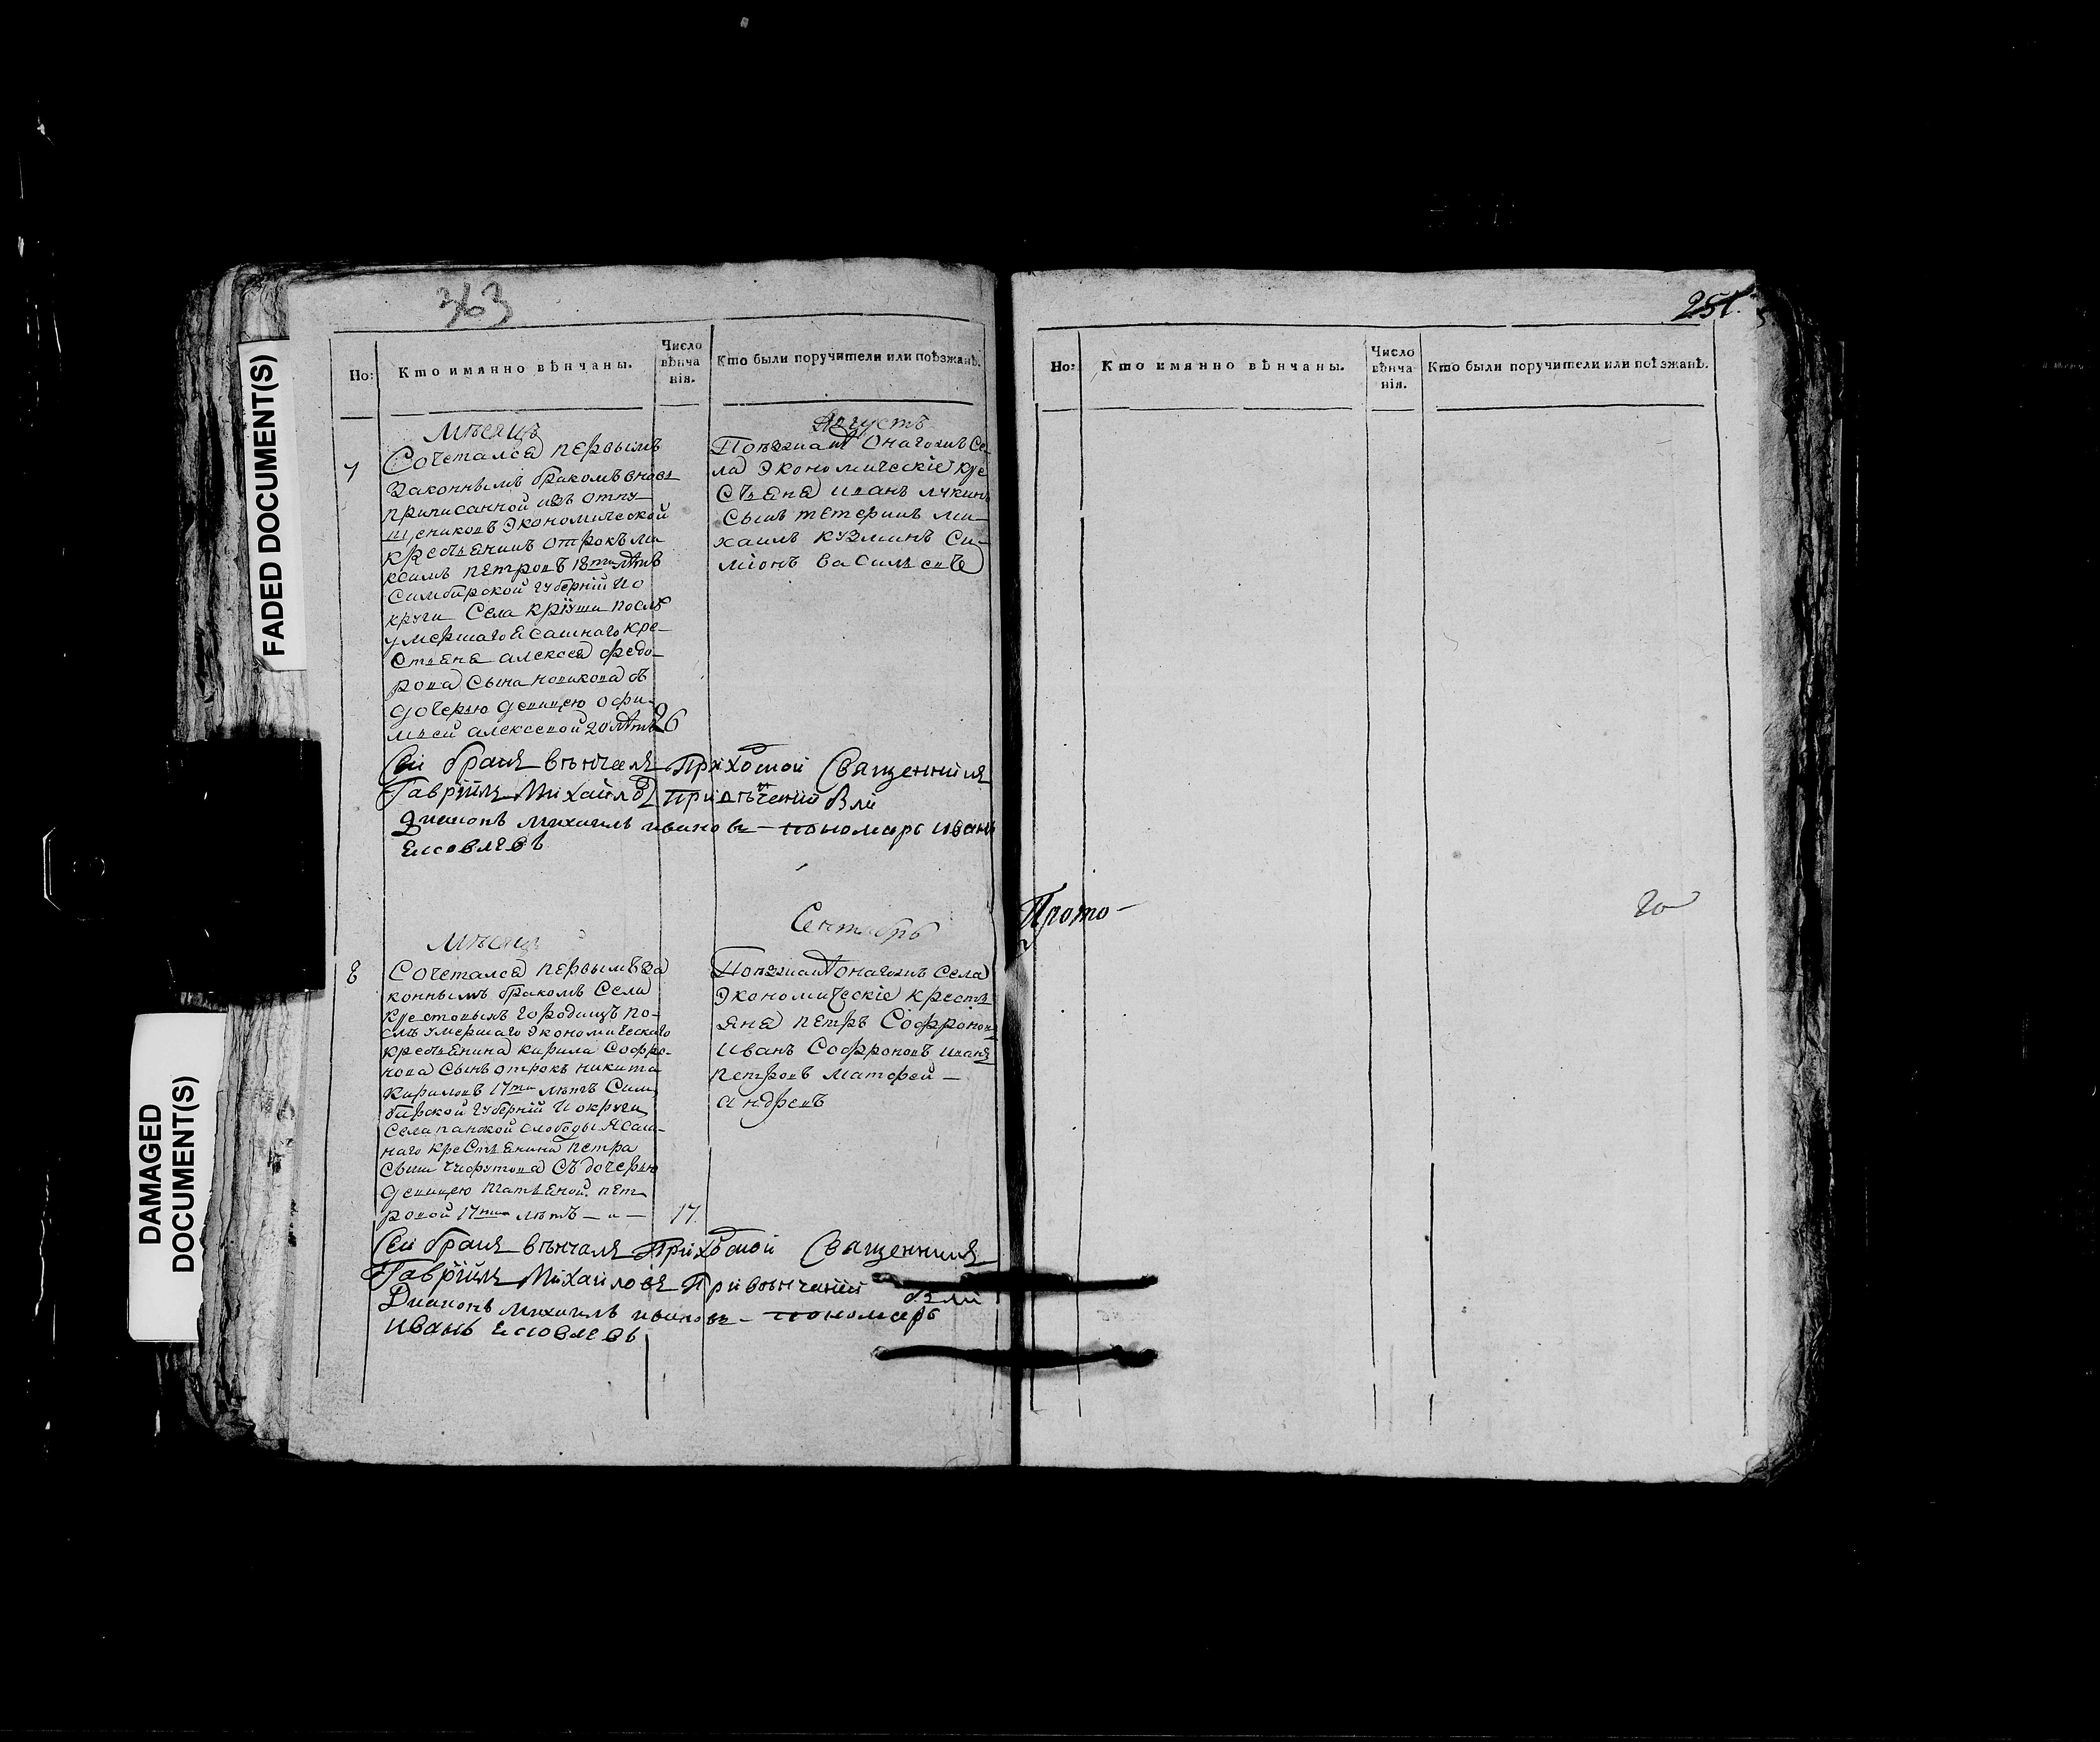 363
Но:
Кто имянно вѣнчаны.
Число
вѣнча
нія.
Кто были поручители или поѣзжанѣ.
Мѣсяцъ
Августъ
7
Сочетался первымъ
законнымъ бракомъ вновь
приписанной изъ отпу-
щениковъ экономической
крестьянинъ отрокъ ма
ксимъ петровъ 18ти лѣтъ
Симбирской губерніи Ио
круги Села кріуши послѣ
умершаго Ясашнаго кре-
стьяна алексея федо-
рова сына новикова съ
дочерью девицею офи-
мьей алексевой 20 лѣтъ
26
Поезжаня Онагожъ Се-
ла Экономическіе кре
стьяня иванъ лукинъ
Сынъ тетеринъ ми-
хаилъ кузминъ Си-
мионъ Василь евъ
Сей бракъ вѣнчалъ Приходской Священникъ
Гавріилъ Михайловъ При вѣнчаніи были
Диаконъ михаилъ ивановъ - пономарь иванъ
Еяковлевъ
Мѣсяцъ
Сентябрь
8
Сочетался первымъ за
коннымъ бракомъ Села
крестовымъ городищъ по-
слѣ умершаго экономическаго
крестьянина кирила Софро-
нова Сынъ отрокъ никита
Кириловъ 17ти лѣтъ Сим-
бирской губерніи И округи
Села панской слободы Ясаш-
наго крестьянина петра
съ дочерью
девицею татьяной пет-
ровой 17ти лѣтъ — „ —
17
Поезжаня онагожъ Села
Экономическіе кресть-
яня петръ Софроновъ
Иванъ Софроновъ иванъ
петровъ матфей —
андреевъ
Сей бракъ вѣнчалъ Приходской Священникъ
Гавріилъ Михайловъ При вѣнчаніи были
Диаконъ михаилъ ивановъ - пономарь
иванъ Еяковлевъ
251.
Но:
Кто имянно вѣнчаны.
Число
вѣнча
нія.
Кто были поручители или поѣзжанѣ.
Прото-
FADED DOCUMENT(S)
DAMAGED
DOCUMENT(S)